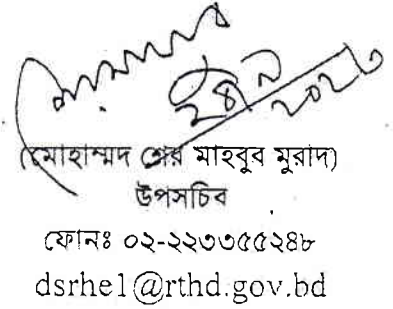 (মোহাম্মদ শের মাহবুব মুরাদ)
উপসচিব
ফোনঃ ০২-২২৩৩৫৫২৪৮
dsrhe1@rthd.gov.bd